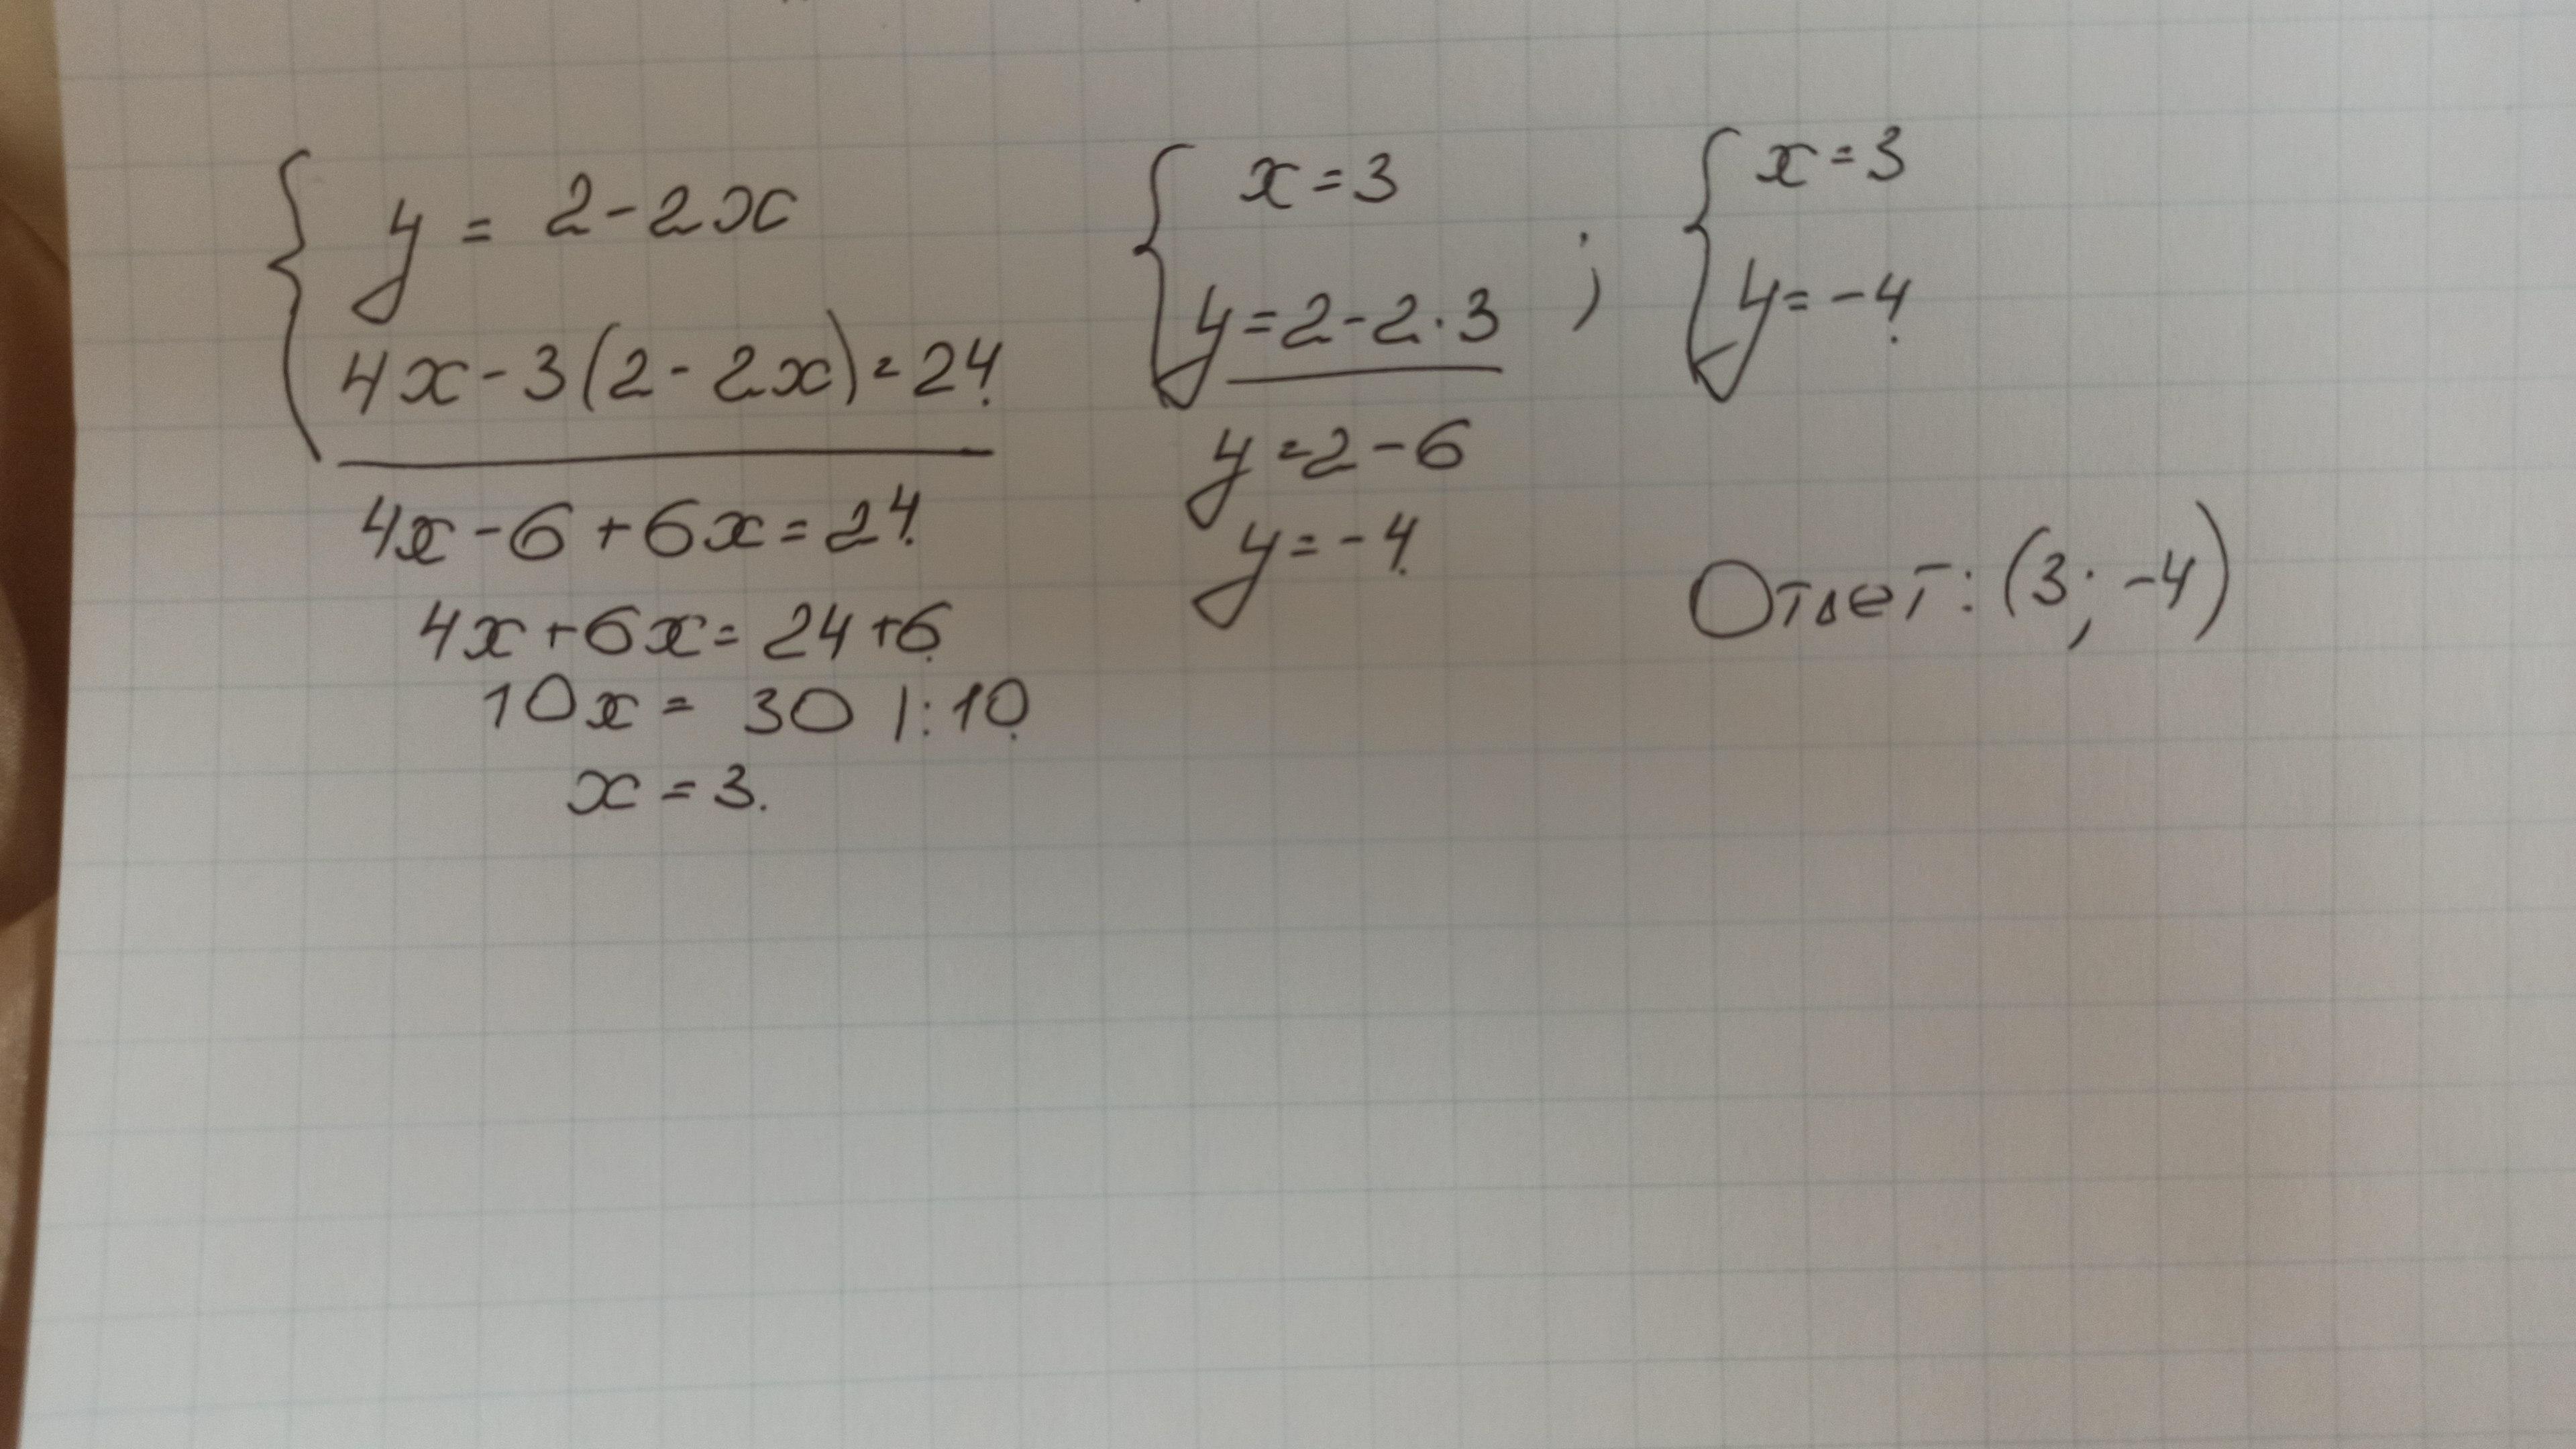 y = 2-2x
4x-3(2-2x)=24.
4x-6+6x=24.
4x+6x=24+6.
10x = 30 |:10.
x = 3.
x=3
y=2-2·3 ;
y=2-6
y=-4.
x=3
y=-4.
Ответ: (3; -4)